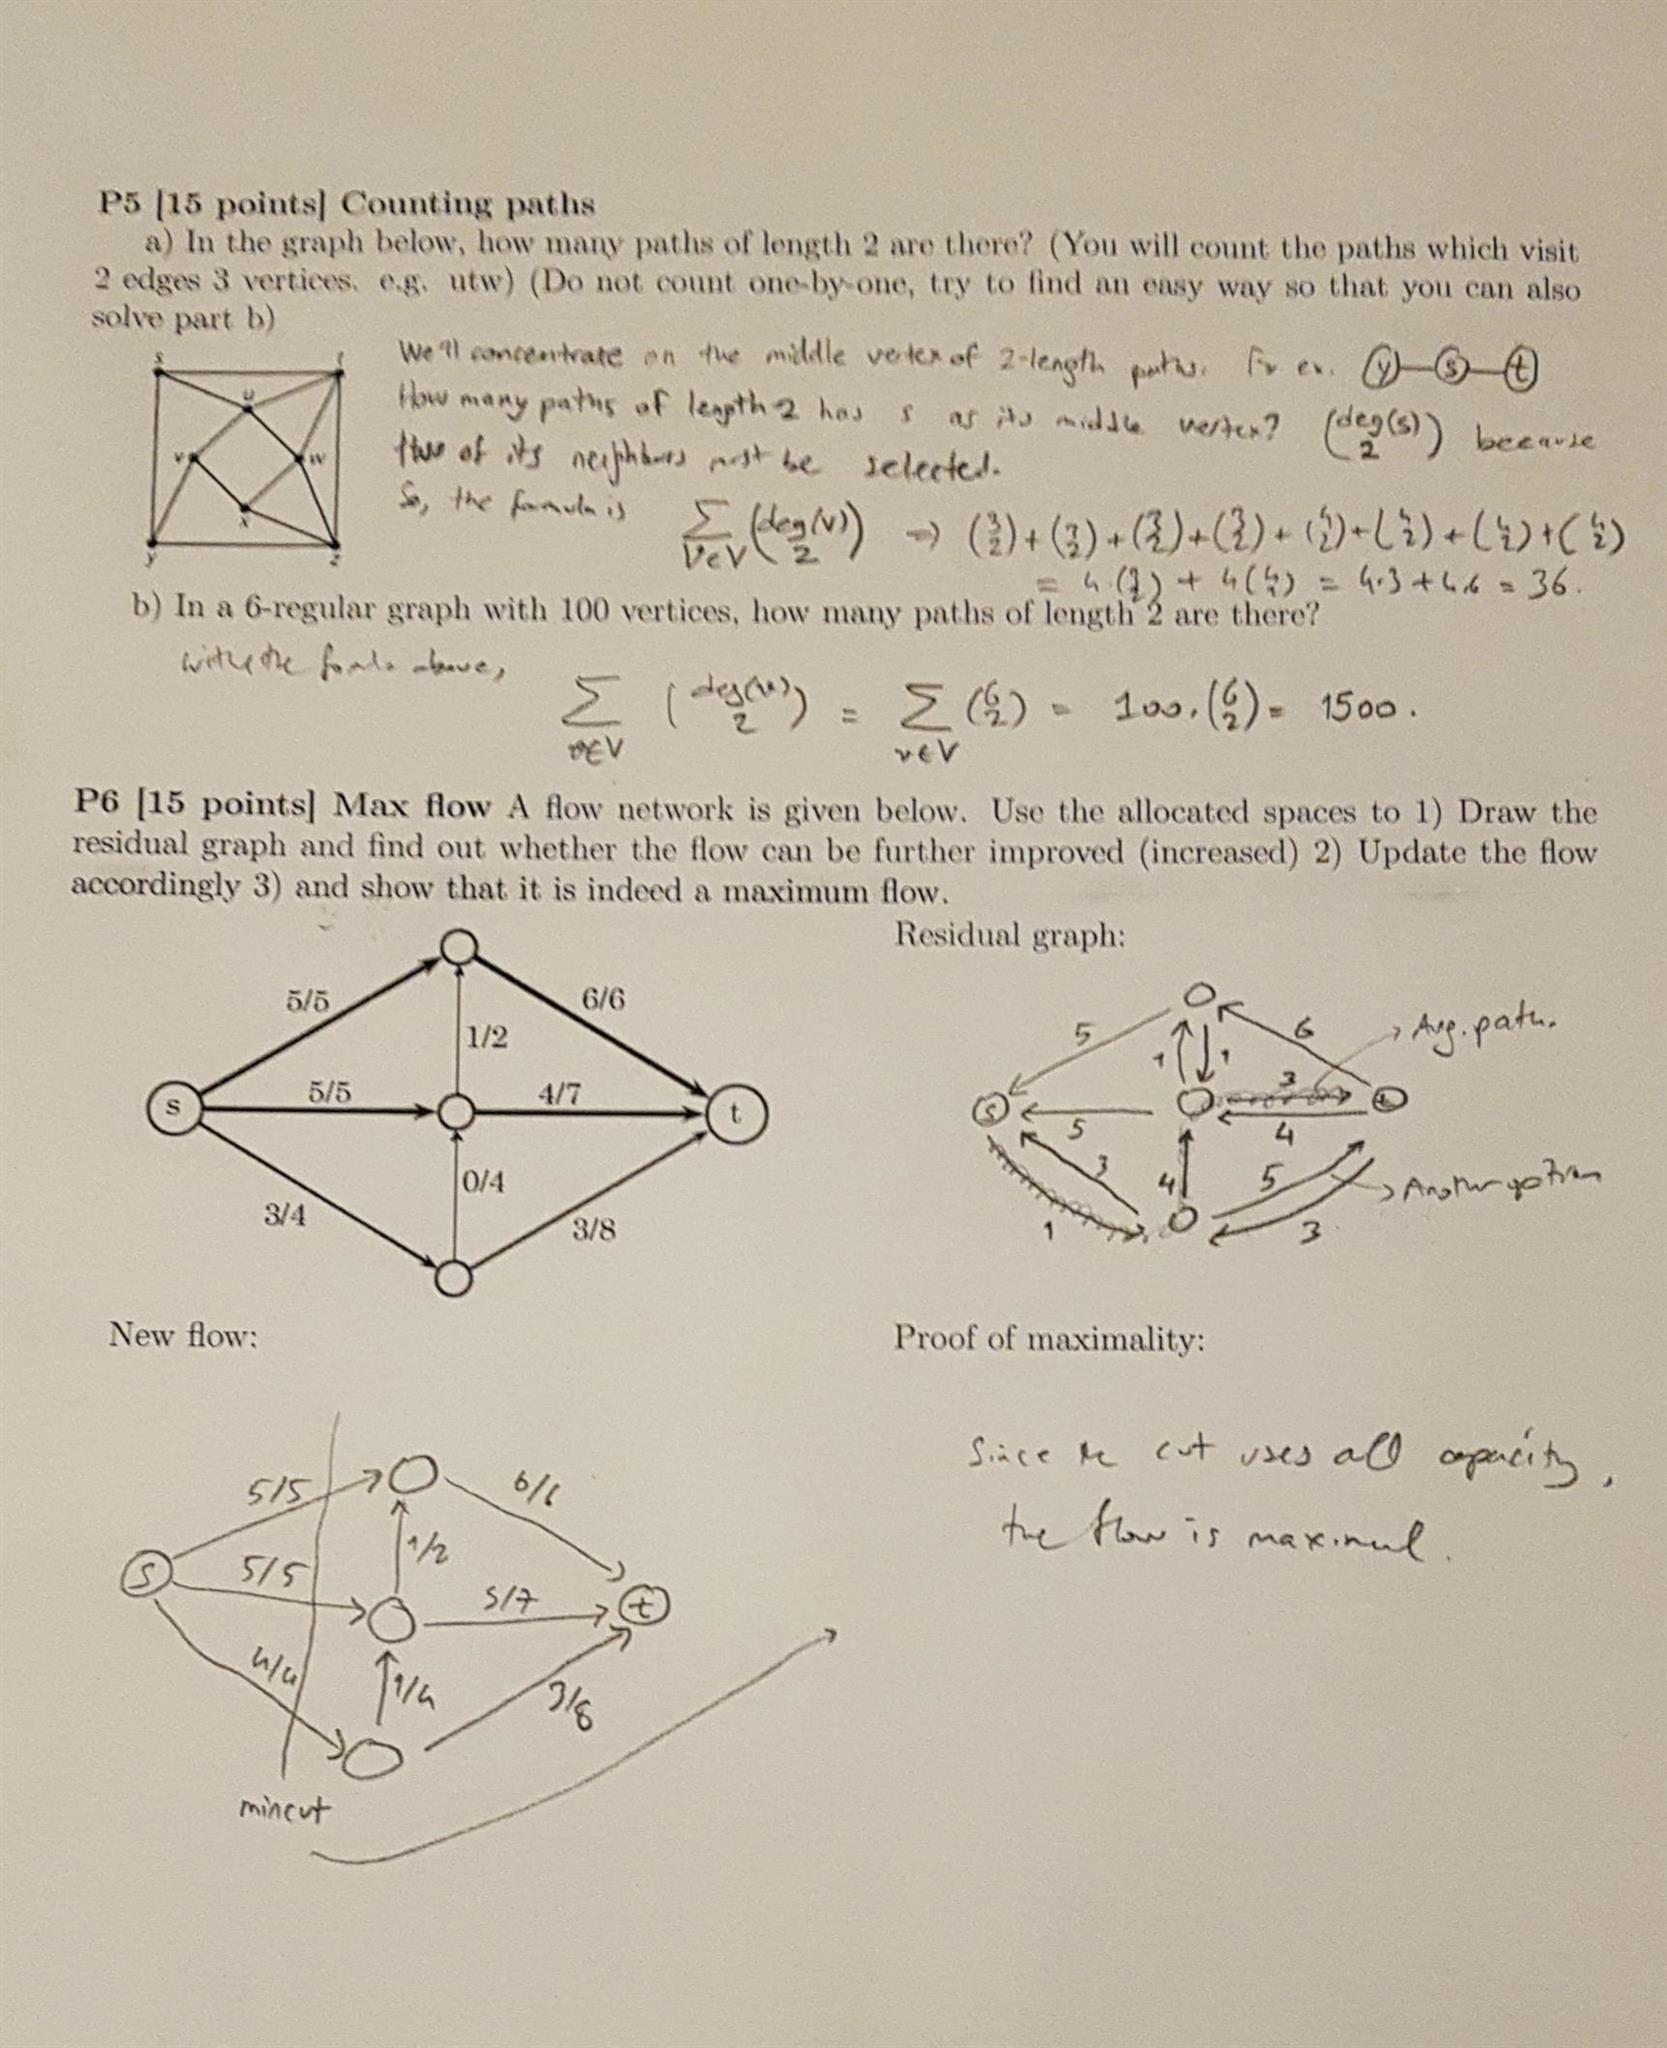 P5 [15 points] Counting paths
a) In the graph below, how many paths of length 2 are there? (You will count the paths which visit
2 edges 3 vertices. e.g. utw) (Do not count one-by-one, try to find an easy way so that you can also
solve part b)
s t
u
v w
x
y z
We'll concentrate on the middle vertex of 2-length paths. For ex. y s t
How many paths of length 2 has s as its middle vertex? (deg(s) 2) because
two of its neighbours must be selected.
So, the formula is ∑ v∈V (deg(v) 2) ⇒ (3 2) + (3 2) + (3 2) + (3 2) + (4 2) + (4 2) + (4 2) + (4 2)
= 4.(3 2) + 4(4 2) = 4.3 + 4.6 = 36.
b) In a 6-regular graph with 100 vertices, how many paths of length 2 are there?
with the above,
∑ v∈V (deg(v) 2) = ∑ v∈V (6 2) = 100.(6 2) = 1500.
P6 [15 points] Max flow A flow network is given below. Use the allocated spaces to 1) Draw the
residual graph and find out whether the flow can be further improved (increased) 2) Update the flow
accordingly 3) and show that it is indeed a maximum flow.
5/5 6/6
1/2
s 5/5 4/7 t
0/4
3/4 3/8
Residual graph:
5 6 Aug. path.
1 1
3
s t
5 4
3 4 5 Another option
1 3
New flow:
5/5 6/6
1/2
s 5/5 5/7 t
4/4 1/4
3/8
mincut
Proof of maximality:
Since the cut uses all capacity,
the flow is maximal.